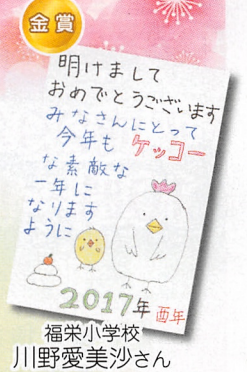 金賞
明けまして
おめでとうございます
みなさんにとって
今年も ケッコー
な素敵な
一年に
なります
ように
2017年 酉年
福栄小学校
川野愛美沙さん